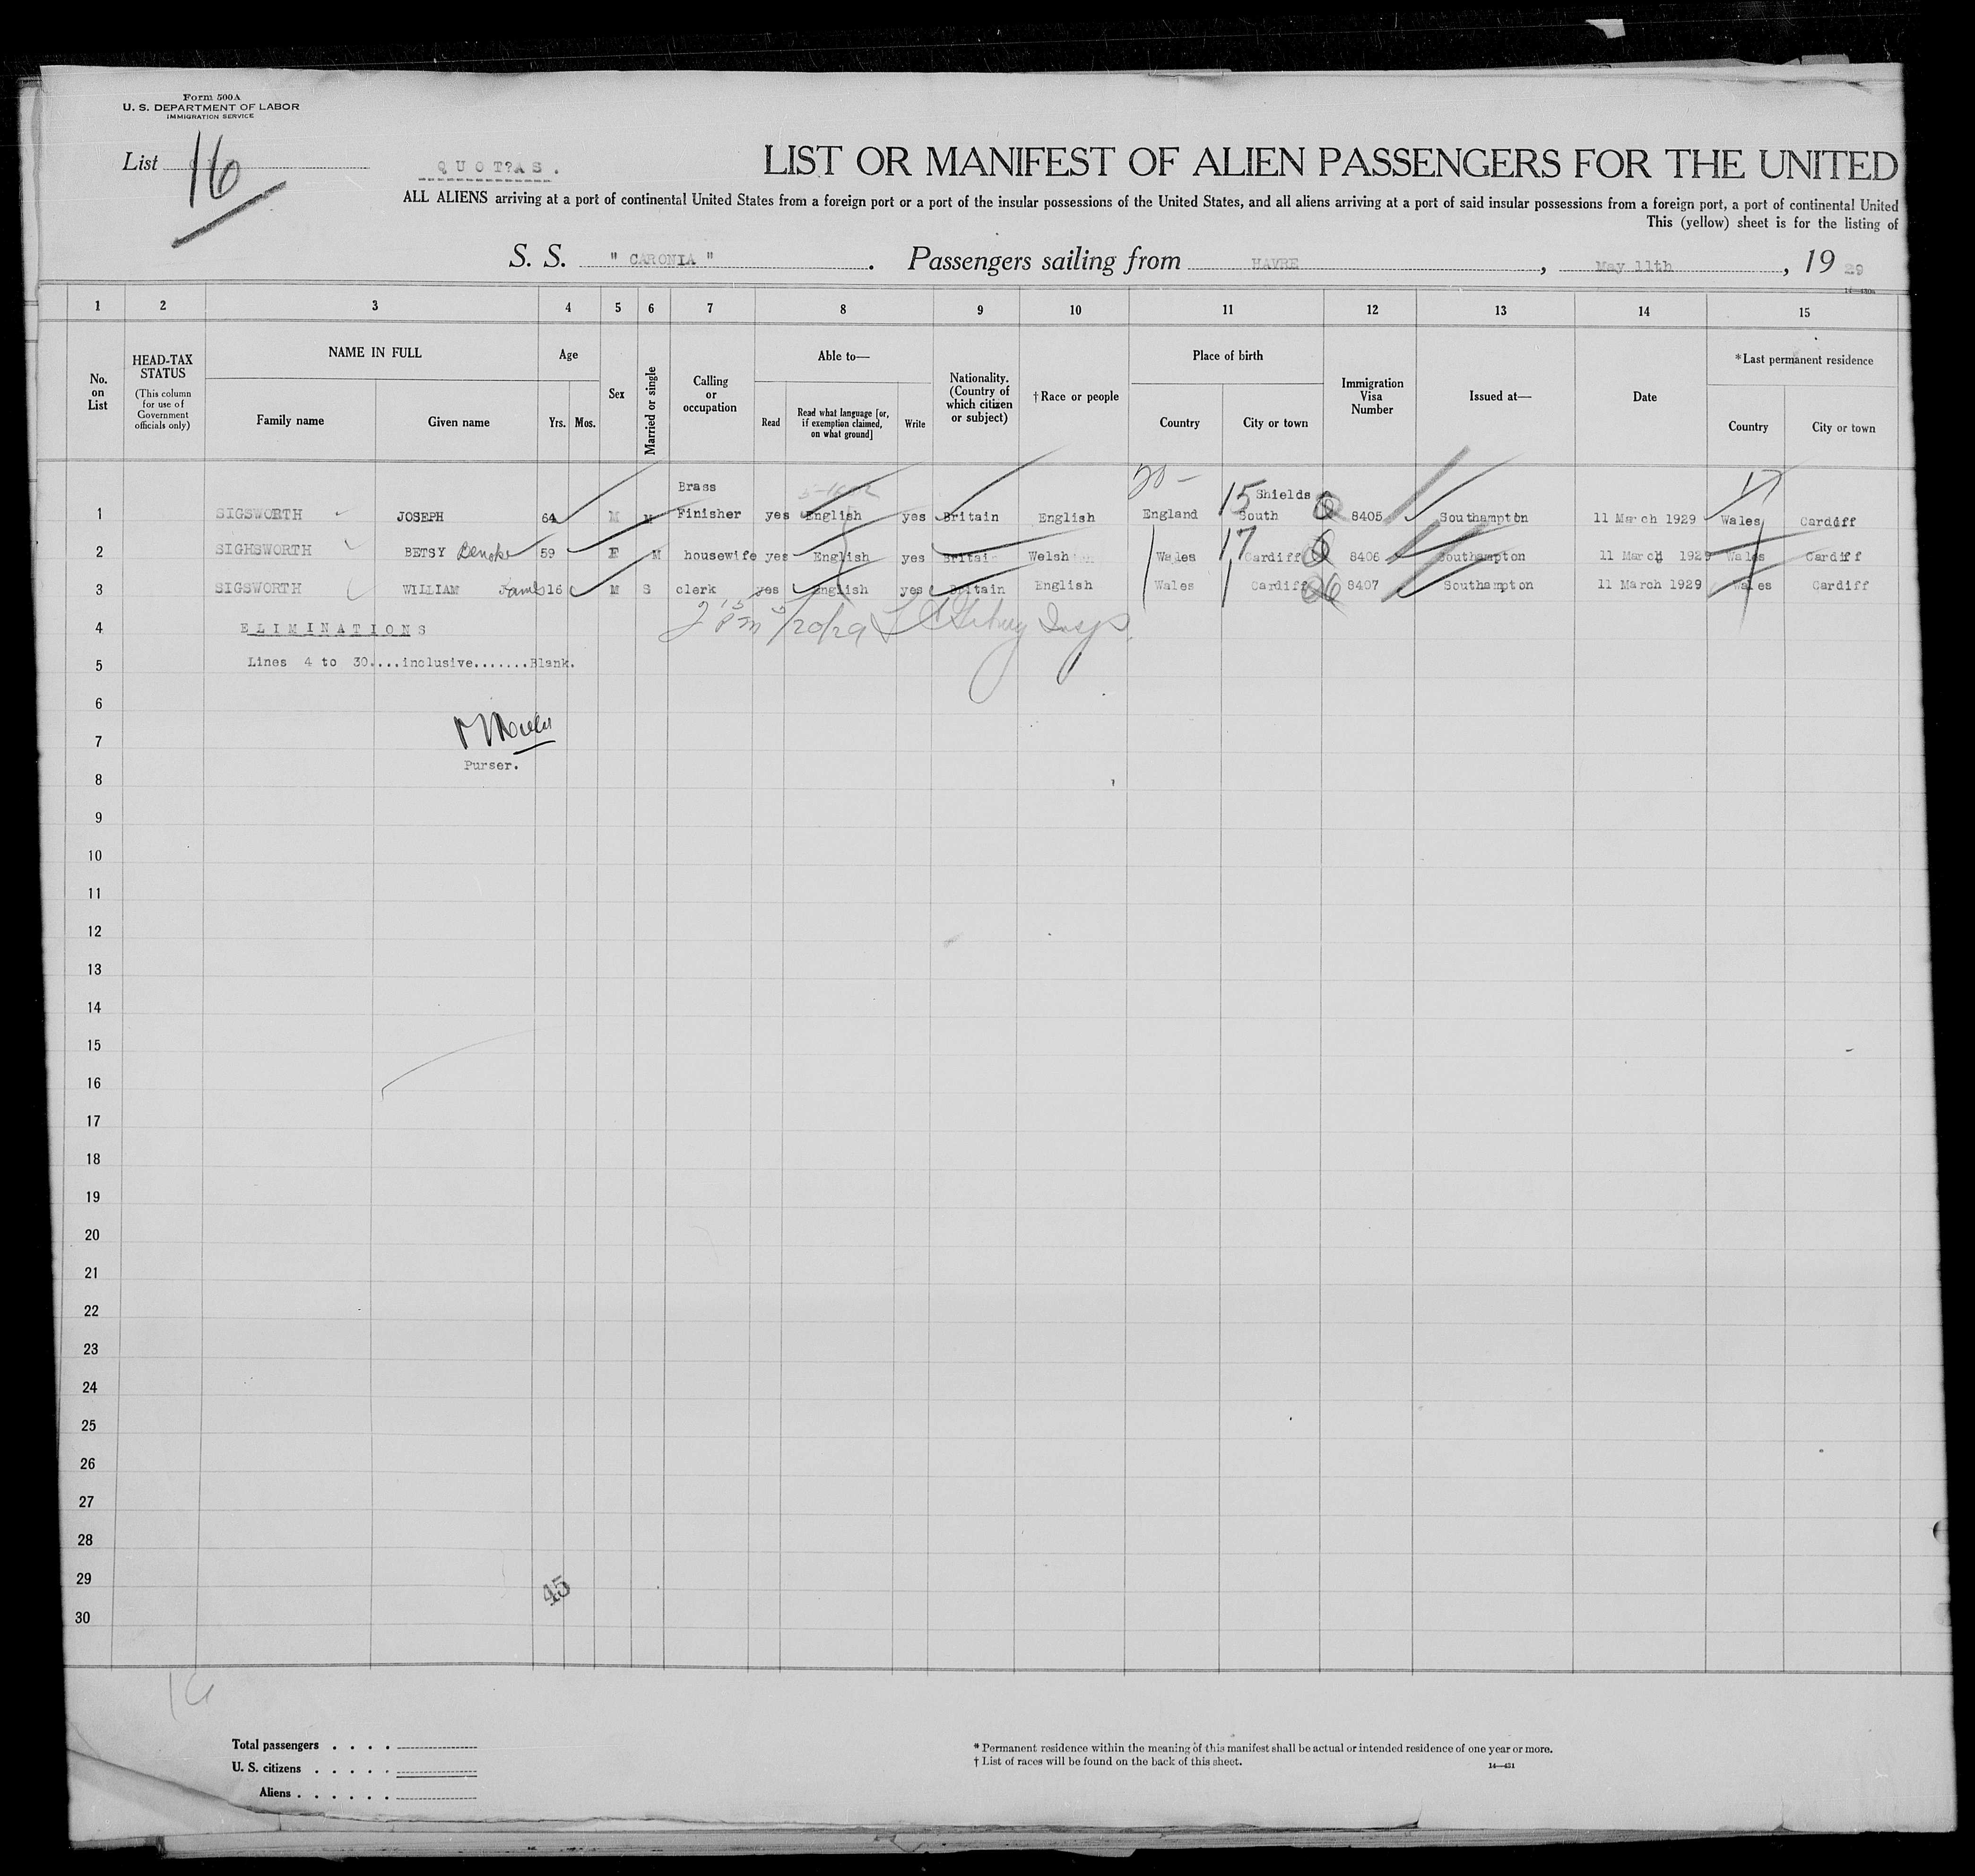 Form 500A
U. S. DEPARTMENT OF LABOR
IMMIGRATION SERVICE
List 16
QUOT?AS.
LIST OR MANIFEST OF ALIEN PASSENGERS FOR THE UNITED
ALL ALIENS arriving at a port of continental United States from a foreign port or a port of the insular possessions of the United States, and all aliens arriving at a port of said insular possessions from a foreign port, a port of continental United
This (yellow) sheet is for the listing of
S. S. " CARONIA ". Passengers sailing from HAVRE, May 11th, 19 29
1 2 3 4 5 6 7 8 9 10 11 12 13 14 15
No. on List
HEAD-TAX STATUS
(This column for use of Government officials only)
NAME IN FULL
Family name
Given name
Age
Yrs. Mos.
Sex
Married or single
Calling or occupation
Able to—
Read
Read what language [or, if exemption claimed, on what ground]
Write
Nationality. (Country of which citizen or subject)
†Race or people
Place of birth
Country
City or town
Immigration Visa Number
Issued at—
Date
*Last permanent residence
Country
City or town
20 —
17
1 SIGSWORTH JOSEPH 64 M M Brass Finisher yes English yes Britain English England 15 Shields South 8405 Southampton 11 March 1929 Wales Cardiff
2 SIGHSWORTH BETSY 59 F M housewife yes English yes Britain Welsh Wales 17 Cardiff 8406 Southampton 11 March 1929 Wales Cardiff
3 SIGSWORTH WILLIAM James 16 M S clerk yes English yes Britain English Wales Cardiff 8407 Southampton 11 March 1929 Wales Cardiff
4 ELIMINATIONS
5 Lines 4 to 30....inclusive.......Blank.
6
7
Purser.
8
9
10
11
12
13
14
15
16
17
18
19
20
21
22
23
24
25
26
27
28
29
45
30
16
Total passengers . . . .
U. S. citizens . . . . .
Aliens . . . . . .
* Permanent residence within the meaning of this manifest shall be actual or intended residence of one year or more.
† List of races will be found on the back of this sheet.
14—431